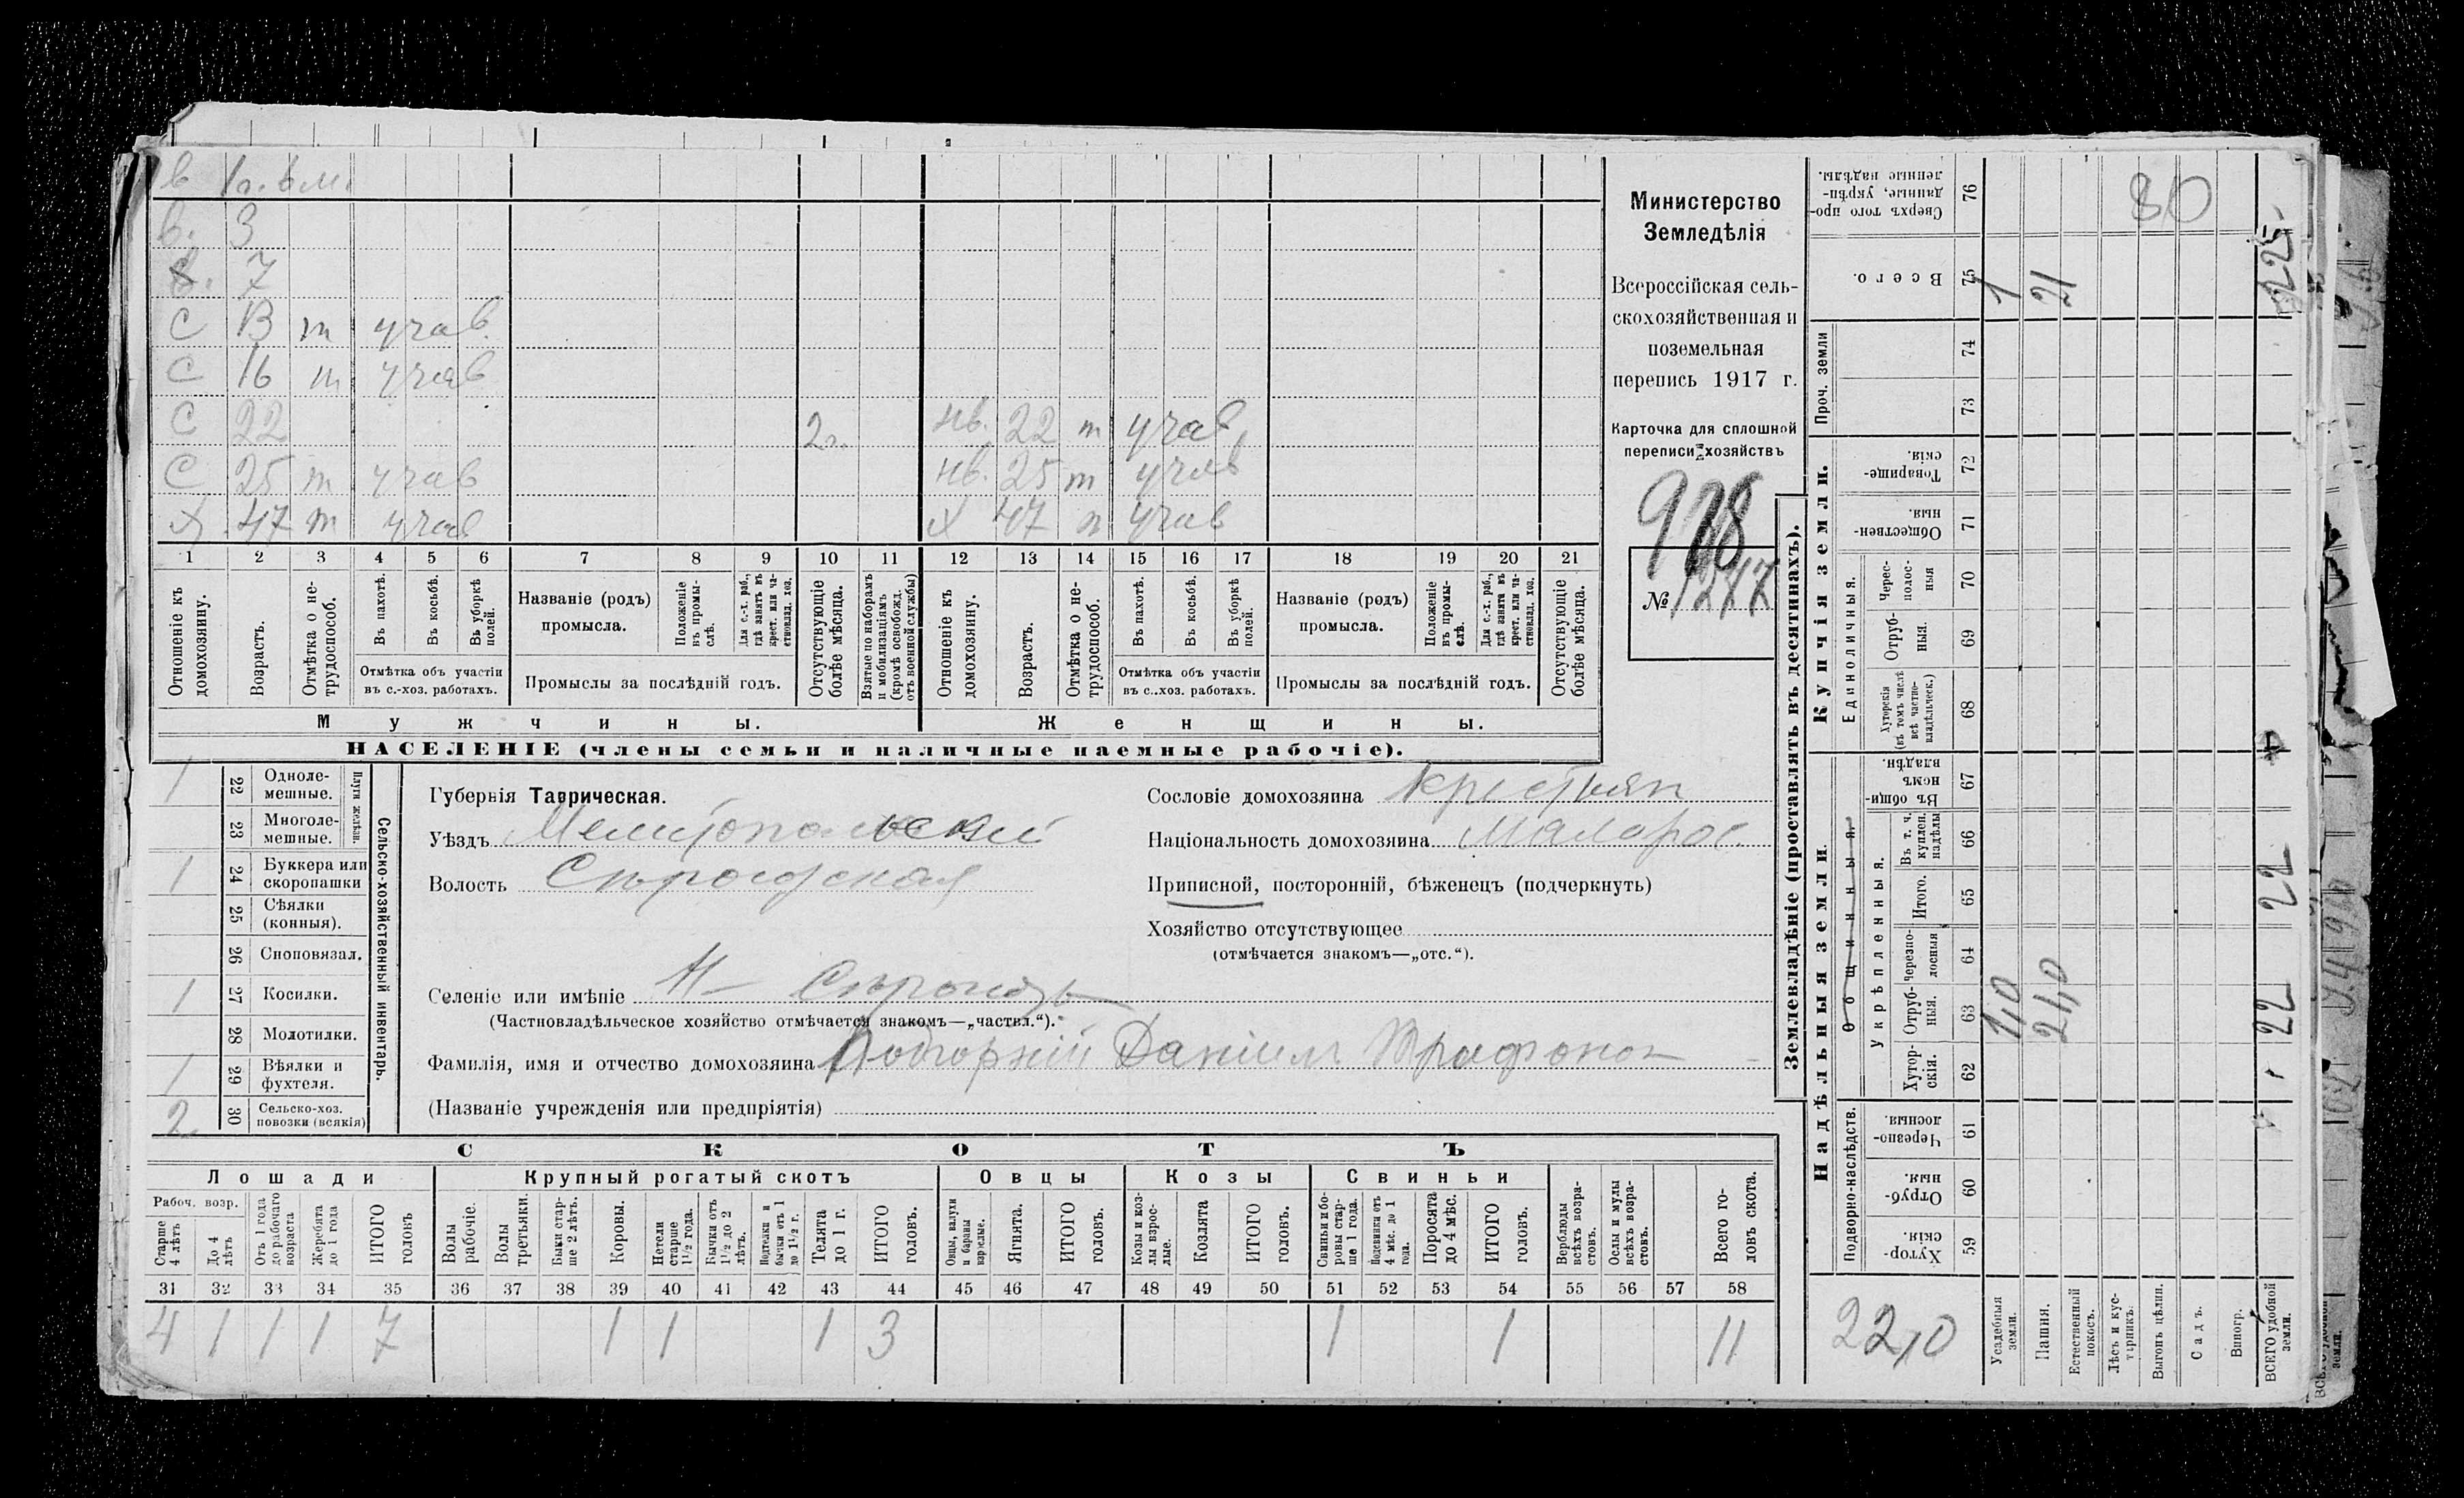 в 1 г. 6 м.
в. 3
в. 7
с 13 т учав.
с 16 т учав
с 22 2 г. нв. 22 т учав.
с 25 т учав нв. 25 т учав
х 47 т учав х 47 п учав
1 2 3 4 5 6 7 8 9 10 11 12 13 14 15 16 17 18 19 20 21
Отношеніе къ домохозяину.
Возрастъ.
Отмѣтка о не-
трудоспособ.
Въ пахотѣ.
Въ косьбѣ.
Въ уборкѣ
полей.
Отмѣтка объ участіи
въ с.-хоз. работахъ.
Названіе (родъ)
промысла.
Положеніе
въ промы-
слѣ.
Для с.-х. раб.,
гдѣ занятъ въ
крест. или ча-
стновлад. хоз.
Промыслы за послѣдній годъ.
Отсутствующіе
болѣе мѣсяца.
Взятые по наборамъ
и мобилизаціямъ
(кромѣ освобожд.
отъ военной службы)
Отношеніе къ
домохозяину.
Возрастъ.
Отмѣтка о не-
трудоспособ.
Въ пахотѣ.
Въ косьбѣ.
Въ уборкѣ
полей.
Отмѣтка объ участіи
въ с..хоз. работахъ.
Названіе (родъ)
промысла.
Положеніе
въ промы-
слѣ.
Для с.-х. раб.,
гдѣ занята въ
крест. или ча-
стновлад. хоз.
Промыслы за послѣдній годъ.
Отсутствующіе
болѣе мѣсяца.
Мужчины.
Женщины.
НАСЕЛЕНІЕ (члены семьи и наличные наемные рабочіе).
Министерство
Земледѣлія
Всероссійская сель-
скохозяйственная и
поземельная
перепись 1917 г.
Карточка для сплошной
переписи хозяйствъ
№ 1277
1 22 Одноле-
мешные.
23 Многоле-
мешные.
Плуги желѣзн.
1 24 Буккера или
скоропашки
25 Сѣялки
(конныя).
26 Сноповязал.
1 27 Косилки.
28 Молотилки.
1 29 Вѣялки и
фухтеля.
2 30 Сельско-хоз.
повозки (всякія)
Сельско-хозяйственный инвентарь.
Губернія Таврическая.
Уѣздъ Мелитопольскій
Волость Сѣрогозская
Селеніе или имѣніе Н– Сѣрогозы
(Частновладѣльческое хозяйство отмѣчается знакомъ—„частвл.“).
Фамилія, имя и отчество домохозяина Подгорній Даніилъ Трифонов
(Названіе учрежденія или предпріятія)
Сословіе домохозяина крестьян
Національность домохозяина Малорос.
Приписной, посторонній, бѣженецъ (подчеркнуть)
Хозяйство отсутствующее
(отмѣчается знакомъ—„отс.“).
СКОТЪ
Лошади
Крупный рогатый скотъ
Овцы
Козы
Свиньи
Рабоч. возр.
Старше
4 лѣтъ
До 4
лѣтъ
Отъ 1 года
до рабочаго
возраста
Жеребята
до 1 года
ИТОГО
головъ
Волы
рабочіе.
Волы
третьяки.
Быки стар-
ше 2 лѣтъ.
Коровы.
Нетели
старше
1½ года.
Бычки отъ
1½ до 2
лѣтъ.
Подтелки и
бычки отъ 1
до 1½ г.
Телята
до 1 г.
ИТОГО
головъ.
Овцы, валухи
и бараны
взрослые.
Ягнята.
ИТОГО
головъ.
Козы и коз-
лы взрос-
лые.
Козлята
ИТОГО
головъ.
Свиньи и бо-
ровы стар-
ше 1 года.
Подсвинки отъ
4 мѣс. до 1
года.
Поросята
до 4 мѣс.
ИТОГО
головъ.
Верблюды
всѣхъ возра-
стовъ.
Ослы и мулы
всѣхъ возра-
стовъ.
Всего го-
ловъ скота.
31 32 33 34 35 36 37 38 39 40 41 42 43 44 45 46 47 48 49 50 51 52 53 54 55 56 57 58
4 1 1 1 7 1 1 1 3 1 1 11
Землевладѣніе (проставлять въ десятинахъ).
Надѣльныя земли.
Купчія земли.
Проч. земли
Подворно-наслѣдств.
Общинныя.
Укрѣпленныя.
Единоличныя.
Сверхъ того про-
данные, укрѣп-
ленные надѣлы. 76 80
Всего. 75 1 21 225
74
73
Товарище-
скія. 72
Обществен-
ныя. 71
Черес-
полос-
ныя 70
Отруб-
ныя. 69
Хуторскія
(въ томъ числѣ
всѣ частно-
владѣльческ.) 68
Въ общи-
номъ
владѣн. 67
Въ т. ч.
куплен.
надѣлы 66
Итого. 65 22
Черезпо-
лосныя 64
Отруб-
ныя. 63 1,0 21,0 22
Хутор-
скія. 62
Черезпо-
лосныя. 61
Отруб-
ныя. 60
Хутор-
скія. 59
22,0
Усадебныя
земли.
Пашня.
Естественный
покосъ.
Лѣсъ и кус-
тарникъ.
Выгонъ цѣлин.
Садъ.
Виногр.
ВСЕГО удобной
земли.